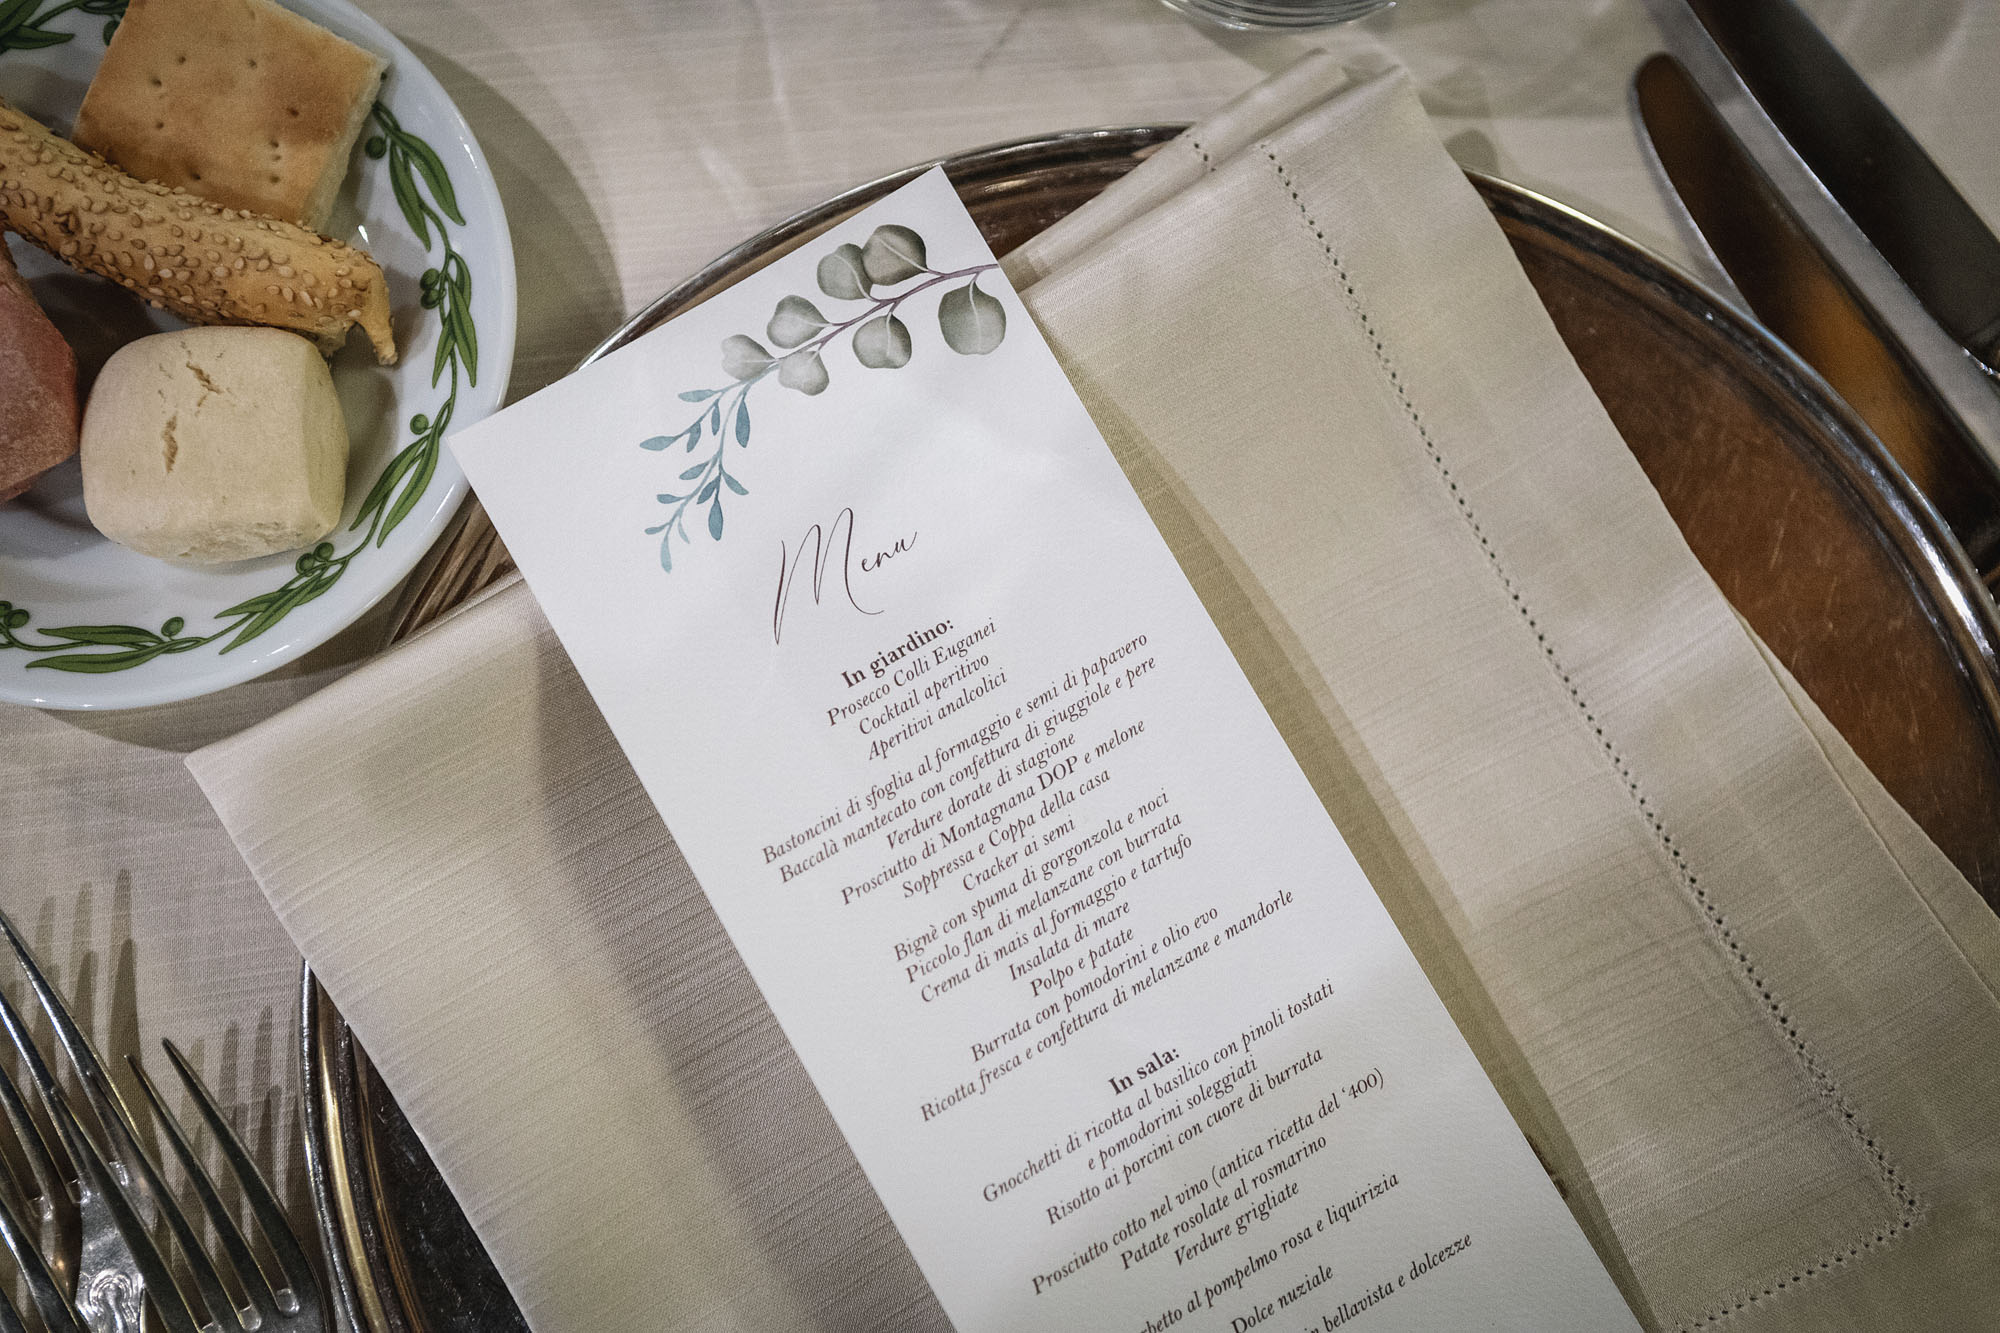 Menu
In giardino:
Prosecco Colli Euganei
Cocktail aperitivo
Aperitivi analcolici
Bastoncini di sfoglia al formaggio e semi di papavero
Baccalà mantecato con confettura di giuggiole e pere
Verdure dorate di stagione
Prosciutto di Montagnana DOP e melone
Soppressa e Coppa della casa
Cracker ai semi
Bignè con spuma di gorgonzola e noci
Piccolo flan di melanzane con burrata
Crema di mais al formaggio e tartufo
Insalata di mare
Polpo e patate
Burrata con pomodorini e olio evo
Ricotta fresca e confettura di melanzane e mandorle
In sala:
Gnocchetti di ricotta al basilico con pinoli tostati
e pomodorini soleggiati
Risotto ai porcini con cuore di burrata
Prosciutto cotto nel vino (antica ricetta del '400)
Patate rosolate al rosmarino
Verdure grigliate
al pompelmo rosa e liquirizia
Dolce nuziale
in bellavista e dolcezze